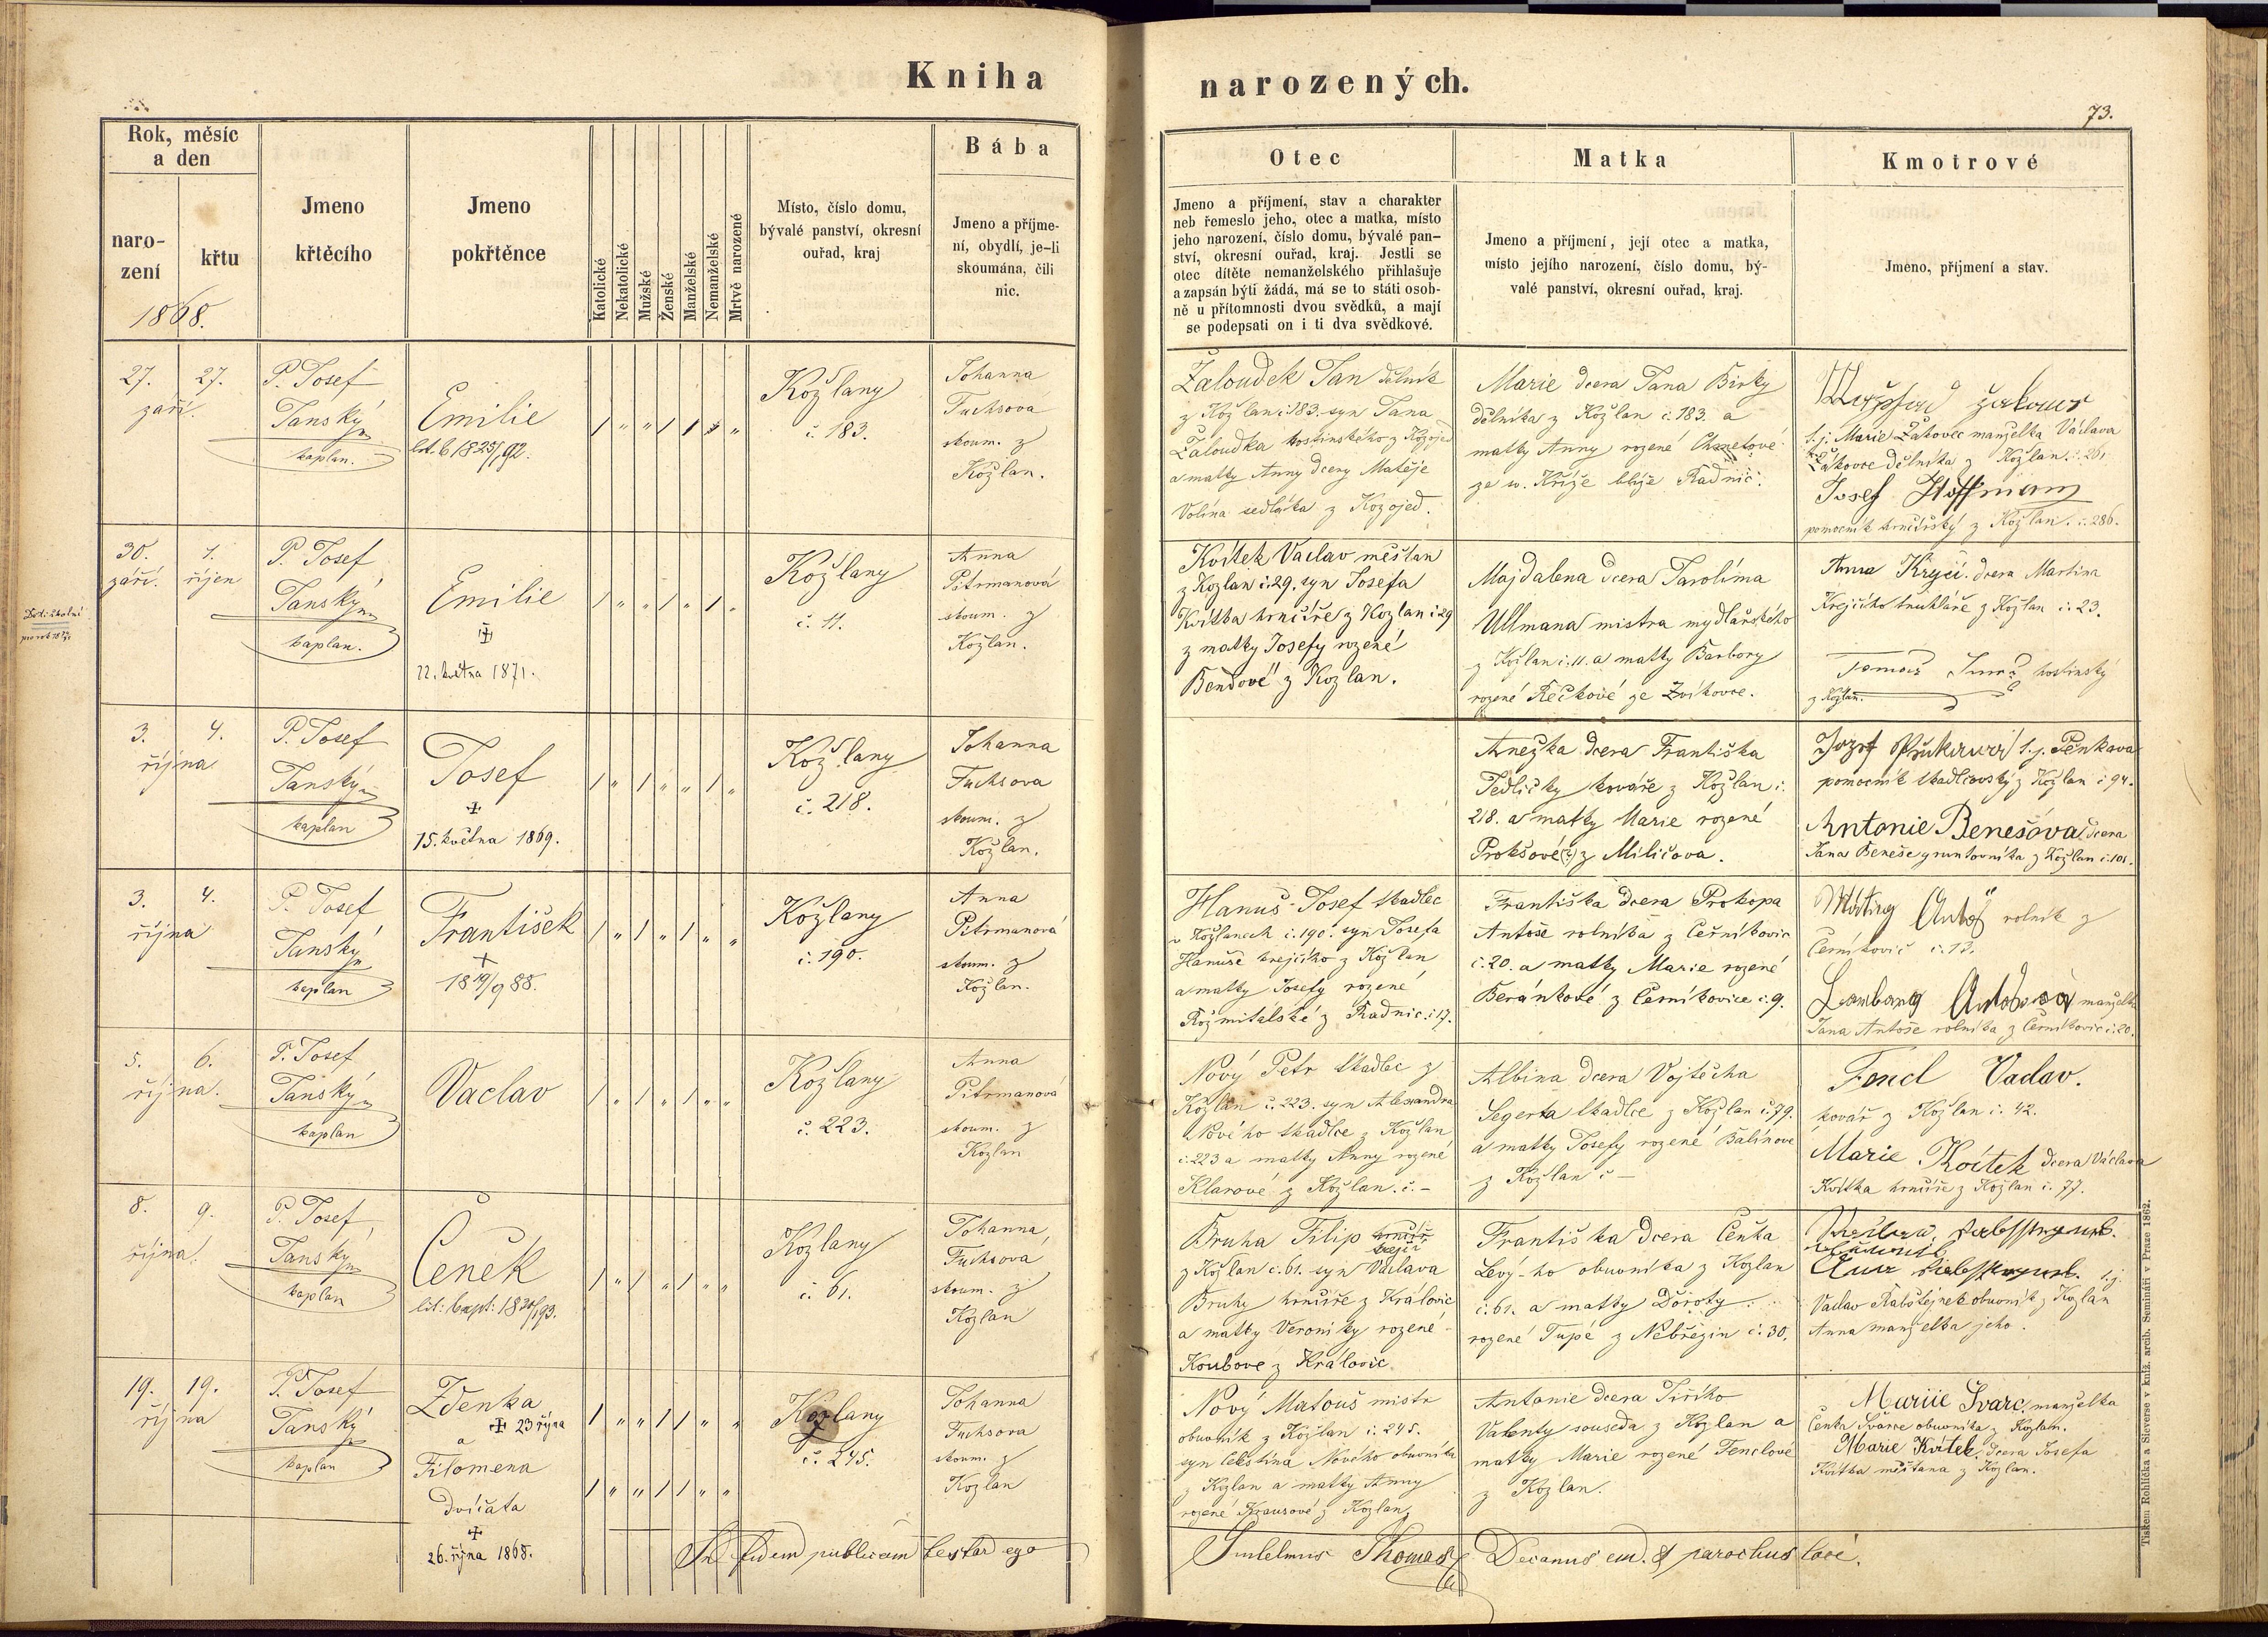 Kniha
narozených.
73.
Rok, měsíc
a den
naro-
zení
křtu
1868.
Jmeno
křtěcího
Jmeno
pokřtěnce
Katolické
Nekatolické
Mužské
Ženské
Manželské
Nemanželské
Mrtvě narozené
Místo, číslo domu,
bývalé panství, okresní
ouřad, kraj
Bába
Jmeno a příjme-
ní, obydlí, je-li
skoumána, čili
nic.
Otec
Jmeno a příjmení, stav a charakter
neb řemeslo jeho, otec a matka, místo
jeho narození, číslo domu, bývalé pan-
ství, okresní ouřad, kraj. Jestli se
otec dítěte nemanželského přihlašuje
a zapsán býti žádá, má se to státi osob-
ně u přítomnosti dvou svědků, a mají
se podepsati on i ti dva svědkové.
Matka
Jmeno a příjmení, její otec a matka,
místo jejího narození, číslo domu, bý-
valé panství, okresní ouřad, kraj.
Kmotrové
Jmeno, příjmení a stav.
27. 27.
září.
P. Josef
Janský
kaplan.
Emilie
Kožlany
č. 183.
Johanna
Fuchsová
skoum. z
Kožlan.
Žaloudek Jan dělník
z Kožlan č. 183. syn Jana
Žaloudka hostinského z Kozojed
a matky Anny dcery Matěje
Volína sedláka z Kozojed.
Marie dcera Jana Birky
dělníka z Kožlan č. 183. a
matky Anny rozené
ze sv. Kříže blíže Radnic.
s. j. Marie Žákovec manželka Václava
Žákovce dělníka z Kožlan č. 261
Josef Hoffmann
pomocník hrnčířský z Kožlan. č. 286.
30. 1.
září. říjen
P. Josef
Janský
kaplan.
Emilie
22. května 1871.
Kožlany
č. 11.
Anna
Pitrmanová
skoum. z
Kožlan.
Kvítek Vaclav měšťan
z Kozlan č. 29. syn Josefa
Kvítka hrnčíře z Kozlan č 29
z matky Josefy rozené
Bendové z Kozlan.
Majdalena dcera Jarolíma
Ullmana mistra mydlařského
z Kožlan č. 11. a matky Barbory
rozené Rečkové ze Zvíkovce.
Anna Krejčí. dcera Martina
Krejčího truhláře z Kožlan č. 23.
Tomáš hostinský
z Kožlan.
3. 4.
října
P. Josef
Janský
kaplan
Josef
15. května 1869.
Kožlany
č. 218.
Johanna
Fuchsova
skoum. z
Kožlan.
Anežka dcera Františka
Jedličky kováře z Kožlan č.
218. a matky Marie rozené
Prokšové(?) z Miličova.
s. j. Pěnkava
pomocník tkadlcovský z Kožlan č 94.
Antonie Benešova dcera
Jana Beneše gruntovníka z Kožlan č. 101.
3. 4.
října
P. Josef
Janský
kaplan
František
18 19/9 88.
Kožlany
č. 190.
Anna
Pitrmanová
skoum. z
Kožlan.
Hanuš Josef tkadlec
v Kožlanech č. 190. syn Josefa
Hanuše krejčího z Kožlan
a matky Josefy rozené
Rožmitálské z Radnic. č 17.
Františka dcera Prokopa
Antoše rolníka z Černíkovic
č. 20. a matky Marie rozené
Beránkové z Černíkovice č. 9.
rolník z
Černíkovic č. 13.
manželka
Jana Antoše rolníka z Černíkovic č. 20.
5. 6.
října.
P. Josef
Janský
kaplan
Vaclav
Kožlany
č. 223.
Anna
Pitrmanova
skoum. z
Kožlan
Nový Petr tkadlec z
Kožlan č. 223. syn Alexandra
Nového tkadlce z Kožlan
č. 223 a matky Anny rozené
Klarové z Kožlan. č. –
Albina dcera Vojtěcha
Segerta tkadlce z Kožlan č. 79.
a matky Josefy rozené Balínove
z Kožlan č –
Fencl Vaclav.
kovář z Kožlan č. 42.
Marie Kvítek dcera Václava
Kvítka hrnčíře z Kožlan č. 77.
8. 9.
října.
P. Josef
Janský
kaplan
Čeněk
Kožlany
č. 61.
Johanna
Fuchsova
skoum. z
Kožlan
Bruha Filip hrnčíř
krejčí
z Kožlan č. 61. syn Václava
Bruhy hrnčíře z Královic
a matky Veroniky rozené
Koubové z Královic
Františka dcera Čeňka
Levý-ho obuvníka z Kožlan
č. 61. a matky Doroty
rozené Tupé z Nebřezin č. 30.
s. j.
Vaclav Rabštejnek obuvník z Kožlan
Anna manželka jeho.
19. 19.
října
P. Josef
Janský
kaplan
Zdenka
23 října
a
Filomena
dvíčata
26. října 1868.
Kozlany
č. 245.
Johanna
Fuchsova
skoum. z
Kožlan
Nový Matouš mistr
obuvník z Kožlan č. 245.
syn Celestina Nového obuvníka
z Kožlan a matky Anny
rozené Krausové z Kožlan
Antonie dcera Jiřího
Valenty souseda z Kožlan a
matky Marie rozené Fenclové
z Kožlan.
Mariie Švarc. manželka
Čeňka Švárce obuvníka z Kožlan.
Marie Kvítek, dcera Josefa
Kvítka měšťana z Kožlan.
In fidem publicam testor ego
Guilelmus Thomas Decanus em. & parochus loci.
Tiskem Rohlíčka a Sieverse v kníž. arcib. Semináři v Praze 1862.